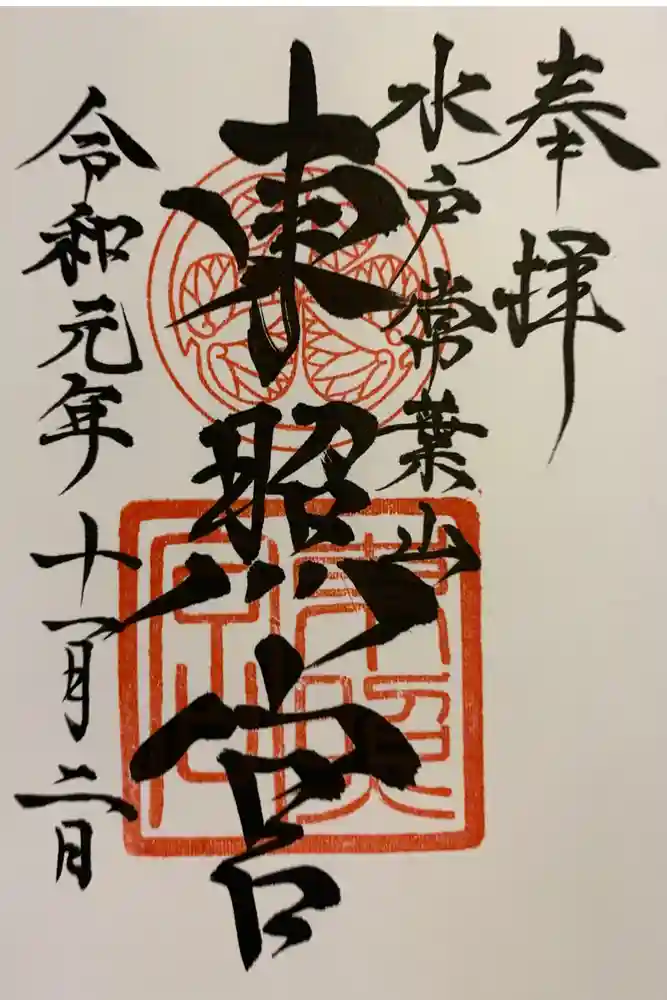 奉拝
水戸常葉山
東照宮
令和元年十一月二日
東照宮